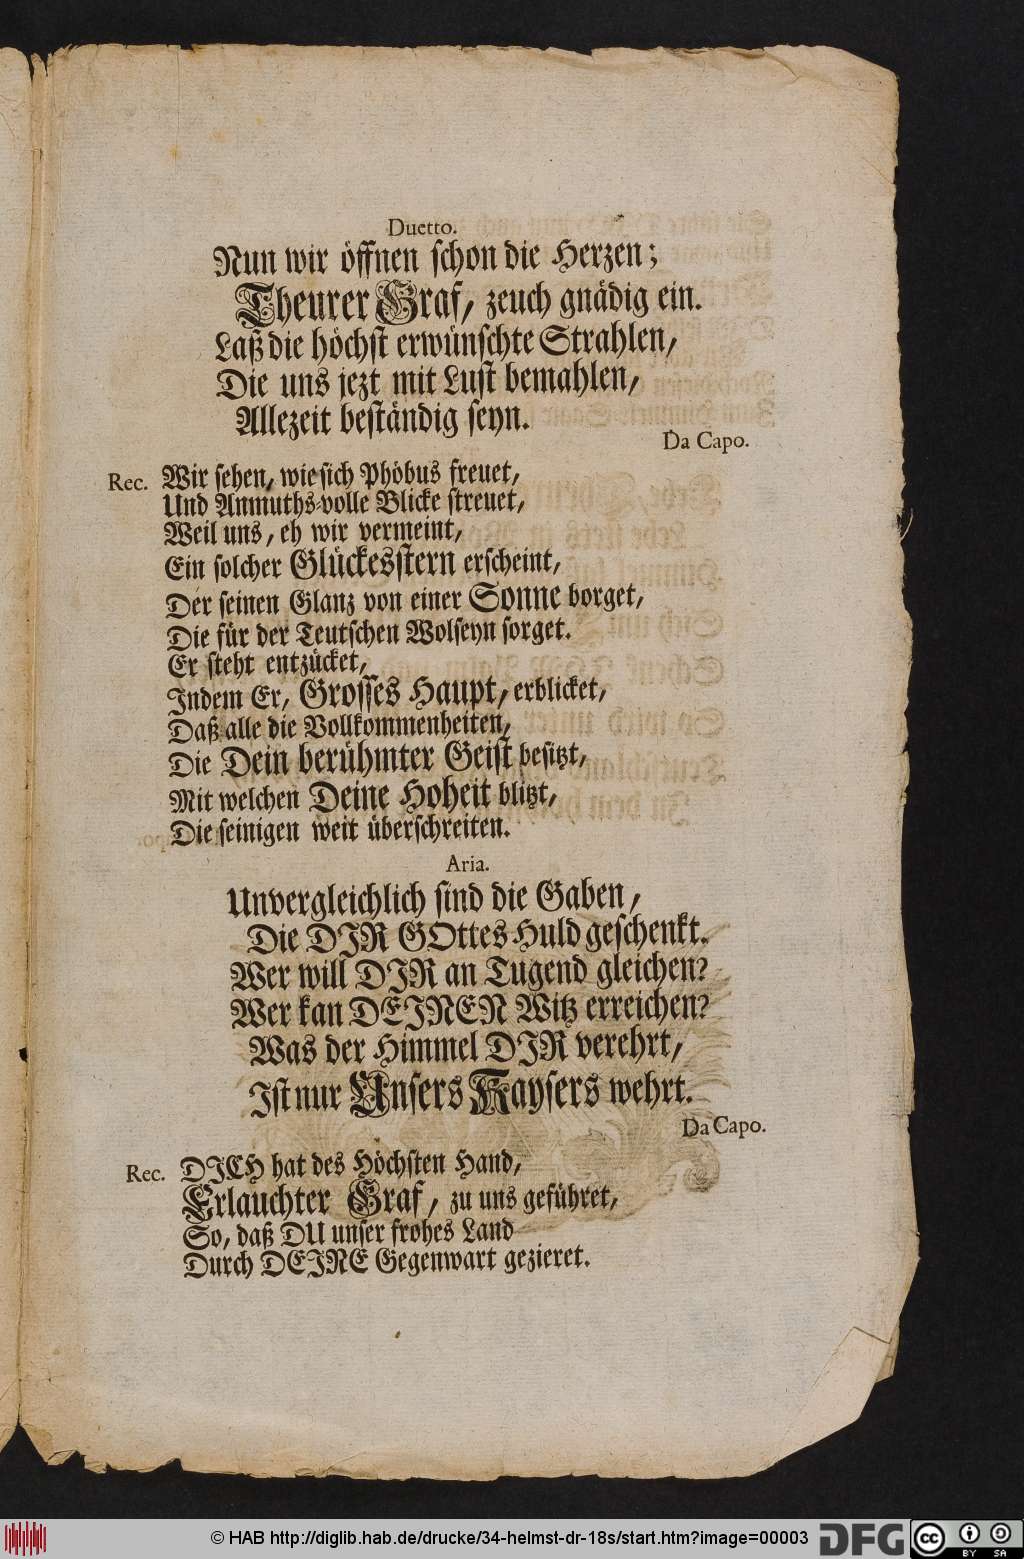 Duetto.
Nun wir öffnen schon die Herzen;
Theurer Graf, zeuch gnädig ein.
Laß die höchst erwünschte Strahlen,
Die uns jezt mit Lust bemahlen,
Allezeit beständig seyn.
Da Capo.
Rec. Wir sehen, wie sich Phöbus freuet,
Und Anmuths-volle Blicke streuet,
Weil uns, eh wir vermeint,
Ein solcher Glückesstern erscheint,
Der seinen Glanz von einer Sonne borget,
Die für der Teutschen Wolseyn sorget.
Er steht entzücket,
Indem Er, Grosses Haupt, erblicket,
Daß alle die Vollkommenheiten,
Die Dein berühmter Geist besitzt,
Mit welchen Deine Hoheit blitzt,
Die seinigen weit überschreiten.
Aria.
Unvergleichlich sind die Gaben,
Die DIR GOttes Huld geschenkt.
Wer will DIR an Tugend gleichen?
Wer kan DEINEN Witz erreichen?
Was der Himmel DIR verehrt,
Ist nur Unsers Kaysers wehrt.
Da Capo.
Rec. DICH hat des Höchsten Hand,
Erlauchter Graf, zu uns geführet,
So, daß DU unser frohes Land
Durch DEINE Gegenwart gezieret.
© HAB http://diglib.hab.de/drucke/34-helmst-dr-18s/start.htm?image=00003
DFG
cc
BY SA